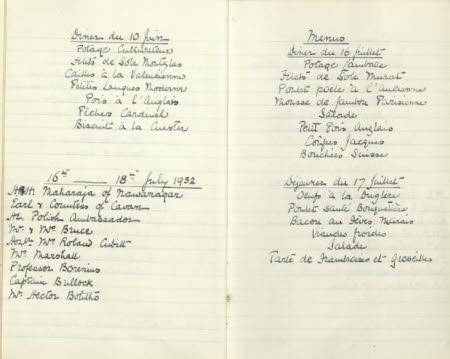 Diner du 10 Juin
Potage Cultivateur
Filets de Sole
Cailles à la Valencienne
Petites Langues Moderne
Pois à l'Anglais
Pêches Cardinal
Biscuit à la Chester
16th — 18th July 1932
H.H. Maharaja of Nawanagar
Earl & Countess of Cavan
H.E. Polish Ambassador
Mr & Mrs Bruce
Honble Mrs Roland Cubitt
Mr Marshall
Professor Borenius
Captain Bullock
Mr Hector Bolitho
Menus
Diner du 16 Juillet
Potage
Filets de Sole Murat
Poulet poêlé à l'
Mousse de Jambon Parisienne
Salade
Petit Pois Anglais
Coupes Jacques
Bouchées Suisse
Déjeuner du 17 Juillet
Oeufs à la
Poulet Sauté Bouquetière
Bacon au Fèves Marais
Viandes froides
Salade
Tarte de Framboises et Groseilles